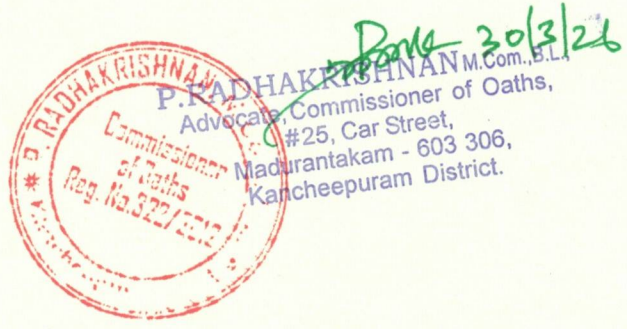 30/3/26
P.RADHAKRISHNAN M.Com.,B.L.,
Advocate, Commissioner of Oaths,
#25, Car Street,
Madurantakam - 603 306,
Kancheepuram District.
P. RADHAKRISHNAN
Commissioner
of Oaths
Reg. No.322/2012